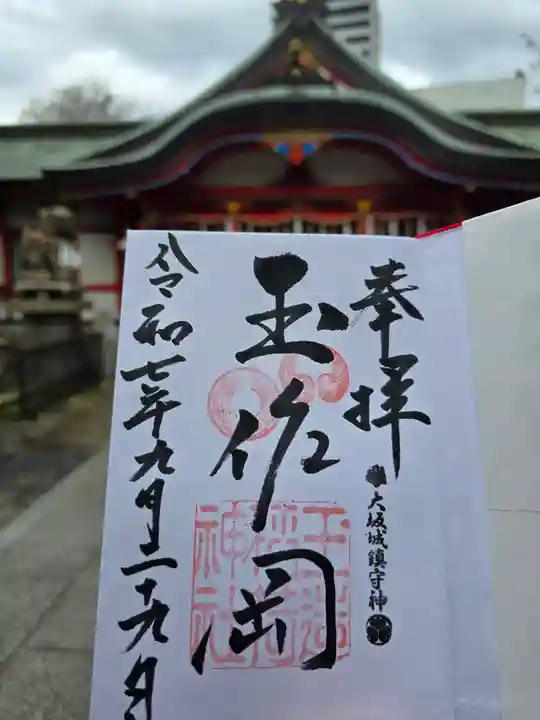 奉拝
大坂城鎮守神
玉作岡
玉造稲荷神社
令和七年九月二十九日